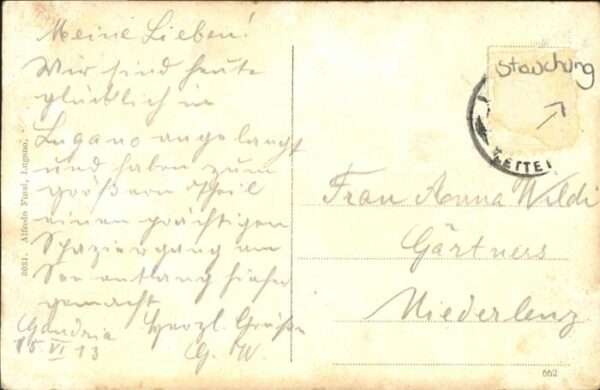 Meine Lieben!
Wir sind heute
glücklich in
Lugano angelangt
und haben zum
größeren Theil
einen prächtigen
Spaziergang am
See entlang hieher
gemacht
Gandria Herzl. Grüße
15 VI 13 G. W.
2031. Alfredo Finzi, Lugano.
Stauchung
LETTE
Frau Anna Wildi
Gärtners
Niederlenz
662